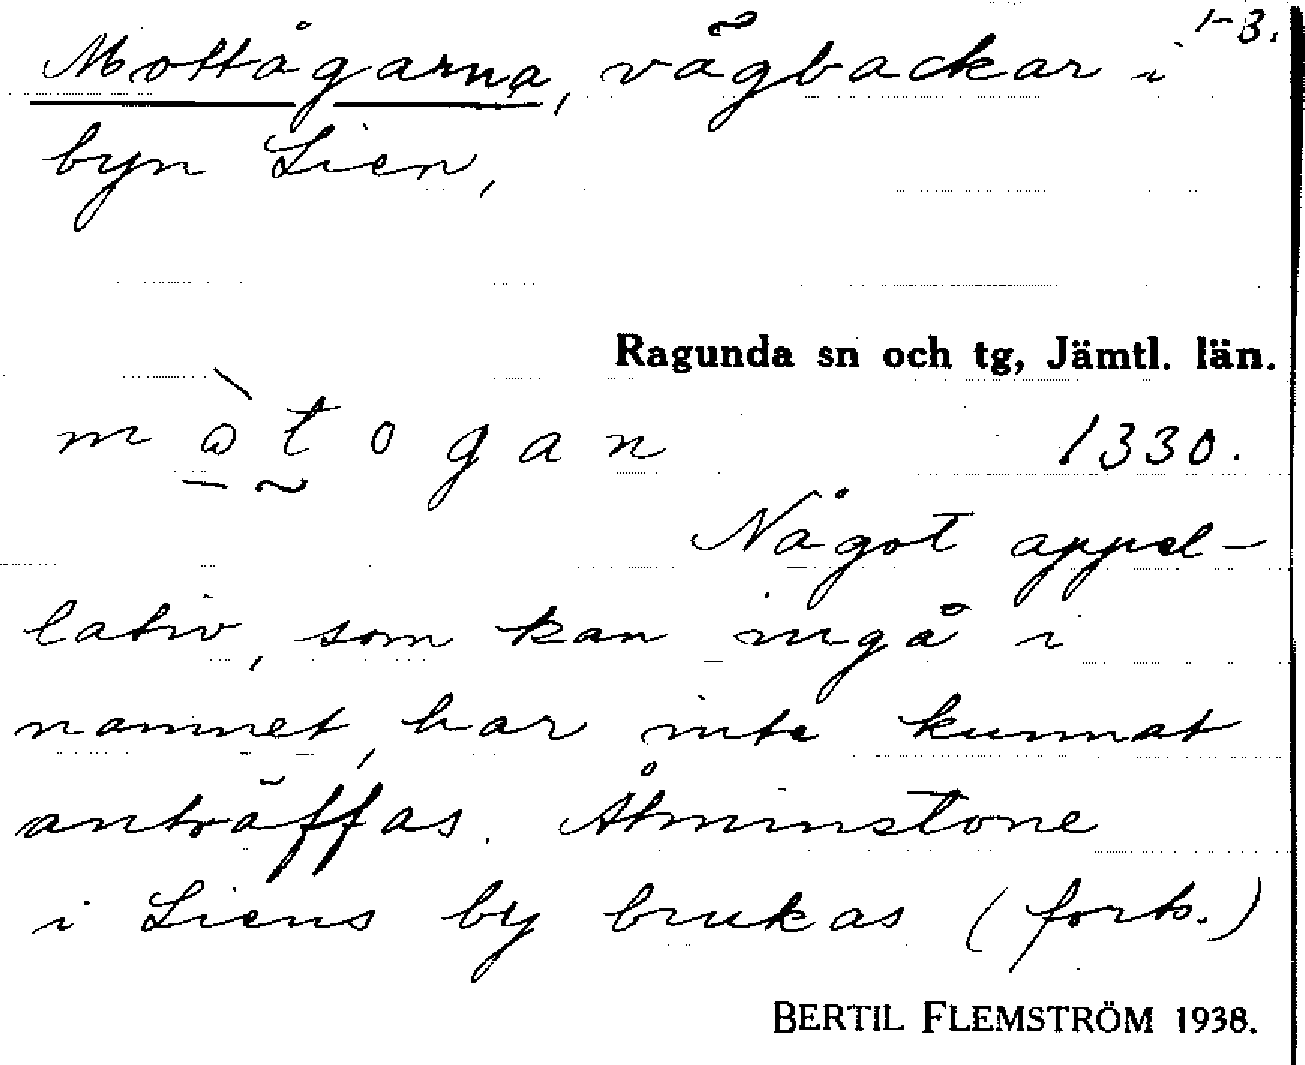 1-3.
Mottågarna, vägbackar i
byn Lien,
Ragunda sn och tg, Jämtl. län.
1330.
Något appel-
lativ, som kan ingå i
namnet, har inte kunnat
anträffas. Åtminstone
i Liens by brukas (forts.)
BERTIL FLEMSTRÖM 1938.